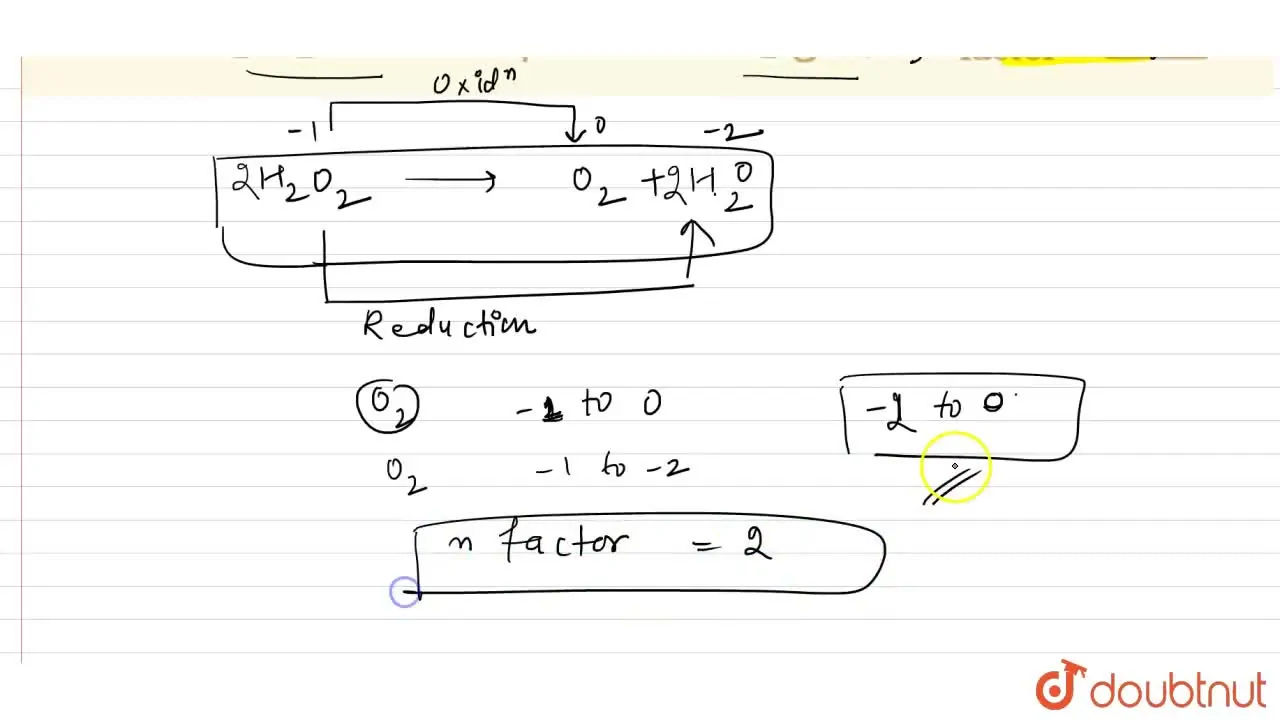 Oxidⁿ
-1 0 -2
2H₂O₂ ⟶ O₂ + 2H₂O
Reduction
O₂ -1 to 0 -2 to 0
O₂ -1 to -2
n factor = 2
doubtnut